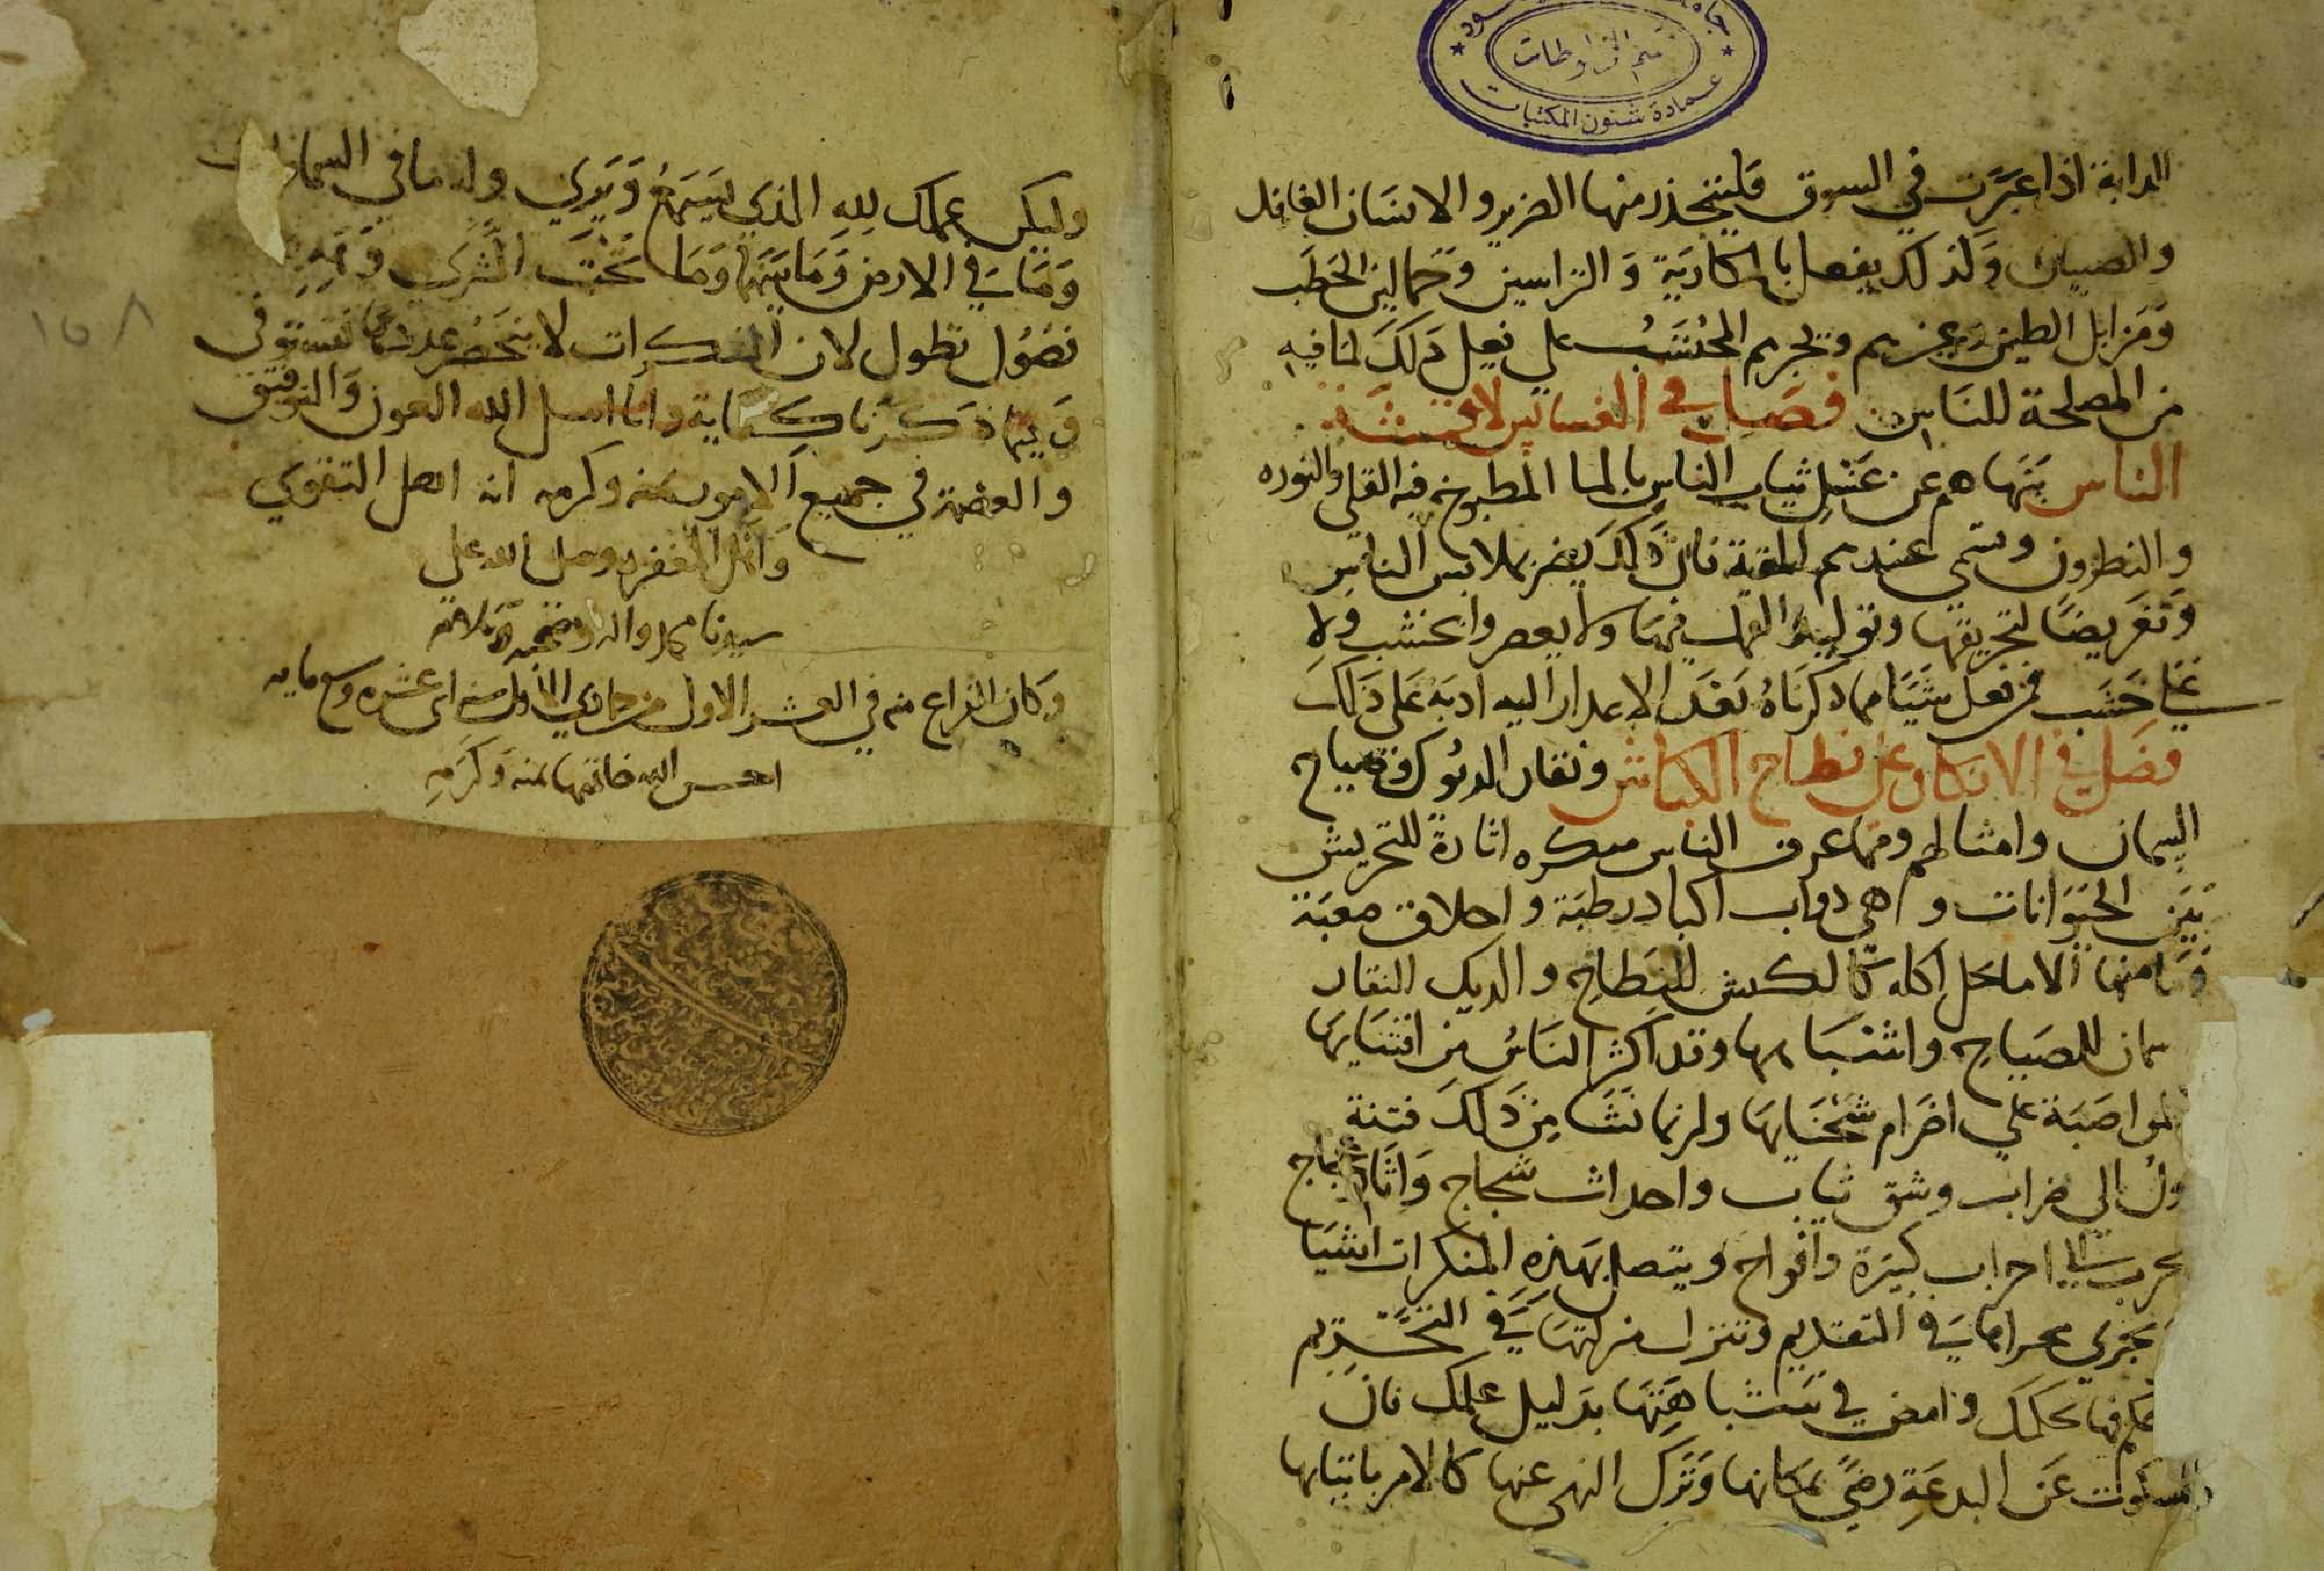 جامعة سعود
قسم المخطوطات
عمادة شئون المكتبات
الدابة اذا عبرت في السوق فليتحذر منها الضرير والانسان الغافل
والصبيان وكذلك يفعل بالمكارية والتراسين وحمالين الحطب
ومزابل الطين وغيرهم ويجرهم المحتسب على فعل ذلك لما فيه
من المصلحة للناس فصل في الغسالين لاقمشة
الناس ينهاهم عن غسل ثياب الناس بالما المطبوخ فيه القلى والنوره
والنطرون وتسمى عندهم فان ذلك يضر بملابس الناس
وتعريضا لتحريقها وتوليد القمل فيها ولا يعصروا بخشب ولا
على خشب فمن فعل شيئا مما ذكرناه بعد الاعذار اليه ادبه على ذلك
فصل في الانكار على نطاح الكباش ونقار الديوك وصياح
السمان وامثالهم ومما عرف الناس منكره اثارة للتحريش
بين الحيوانات وهي دواب اكباد رطبة واخلاق صعبة
وما منها الا ما حل اكله كالكبش للنطاح والديك النقار
سمان للصياح واشباهها وقد اكثر الناس من اقتنايها
المواصبة على اضرام شحنايها ولربما نشا من ذلك فتنة
ول الى ضراب وشق ثياب واحداث شجاج واثارة
حرب الى احزاب كبيرة وافواج ويتصل بهذه المنكرات اشيا
تجري مجراها في التقديم وتنزل منزلتها في التحريم
حكم فيها بحكمك وامض في بدليل علمك فان
السكوت عن البدعة رضي بمكانها وترك النهي عنها كالامر باتيانها
وليكن عملك لله الذي يسمع ويرى وله ما في السماوات
وما في الارض وما بينهما وما تحت الثرى
فصول تطول لان المنكرات لا ينحصر عددها
وفيما ذكرنا كفاية وانا اسل الله العون والتوفيق
والعصمة في جميع الامور بمنه وكرمه انه اهل التقوى
واهل المغفره وصلى الله على
سيدنا محمد واله وصحبه وسلامه
وكان الفراغ منه في العشر الاول من جمادى الاول سنه اثنى عشره وسبع مايه
احسن الله خاتمتها بمنه وكرمه
١٥٨